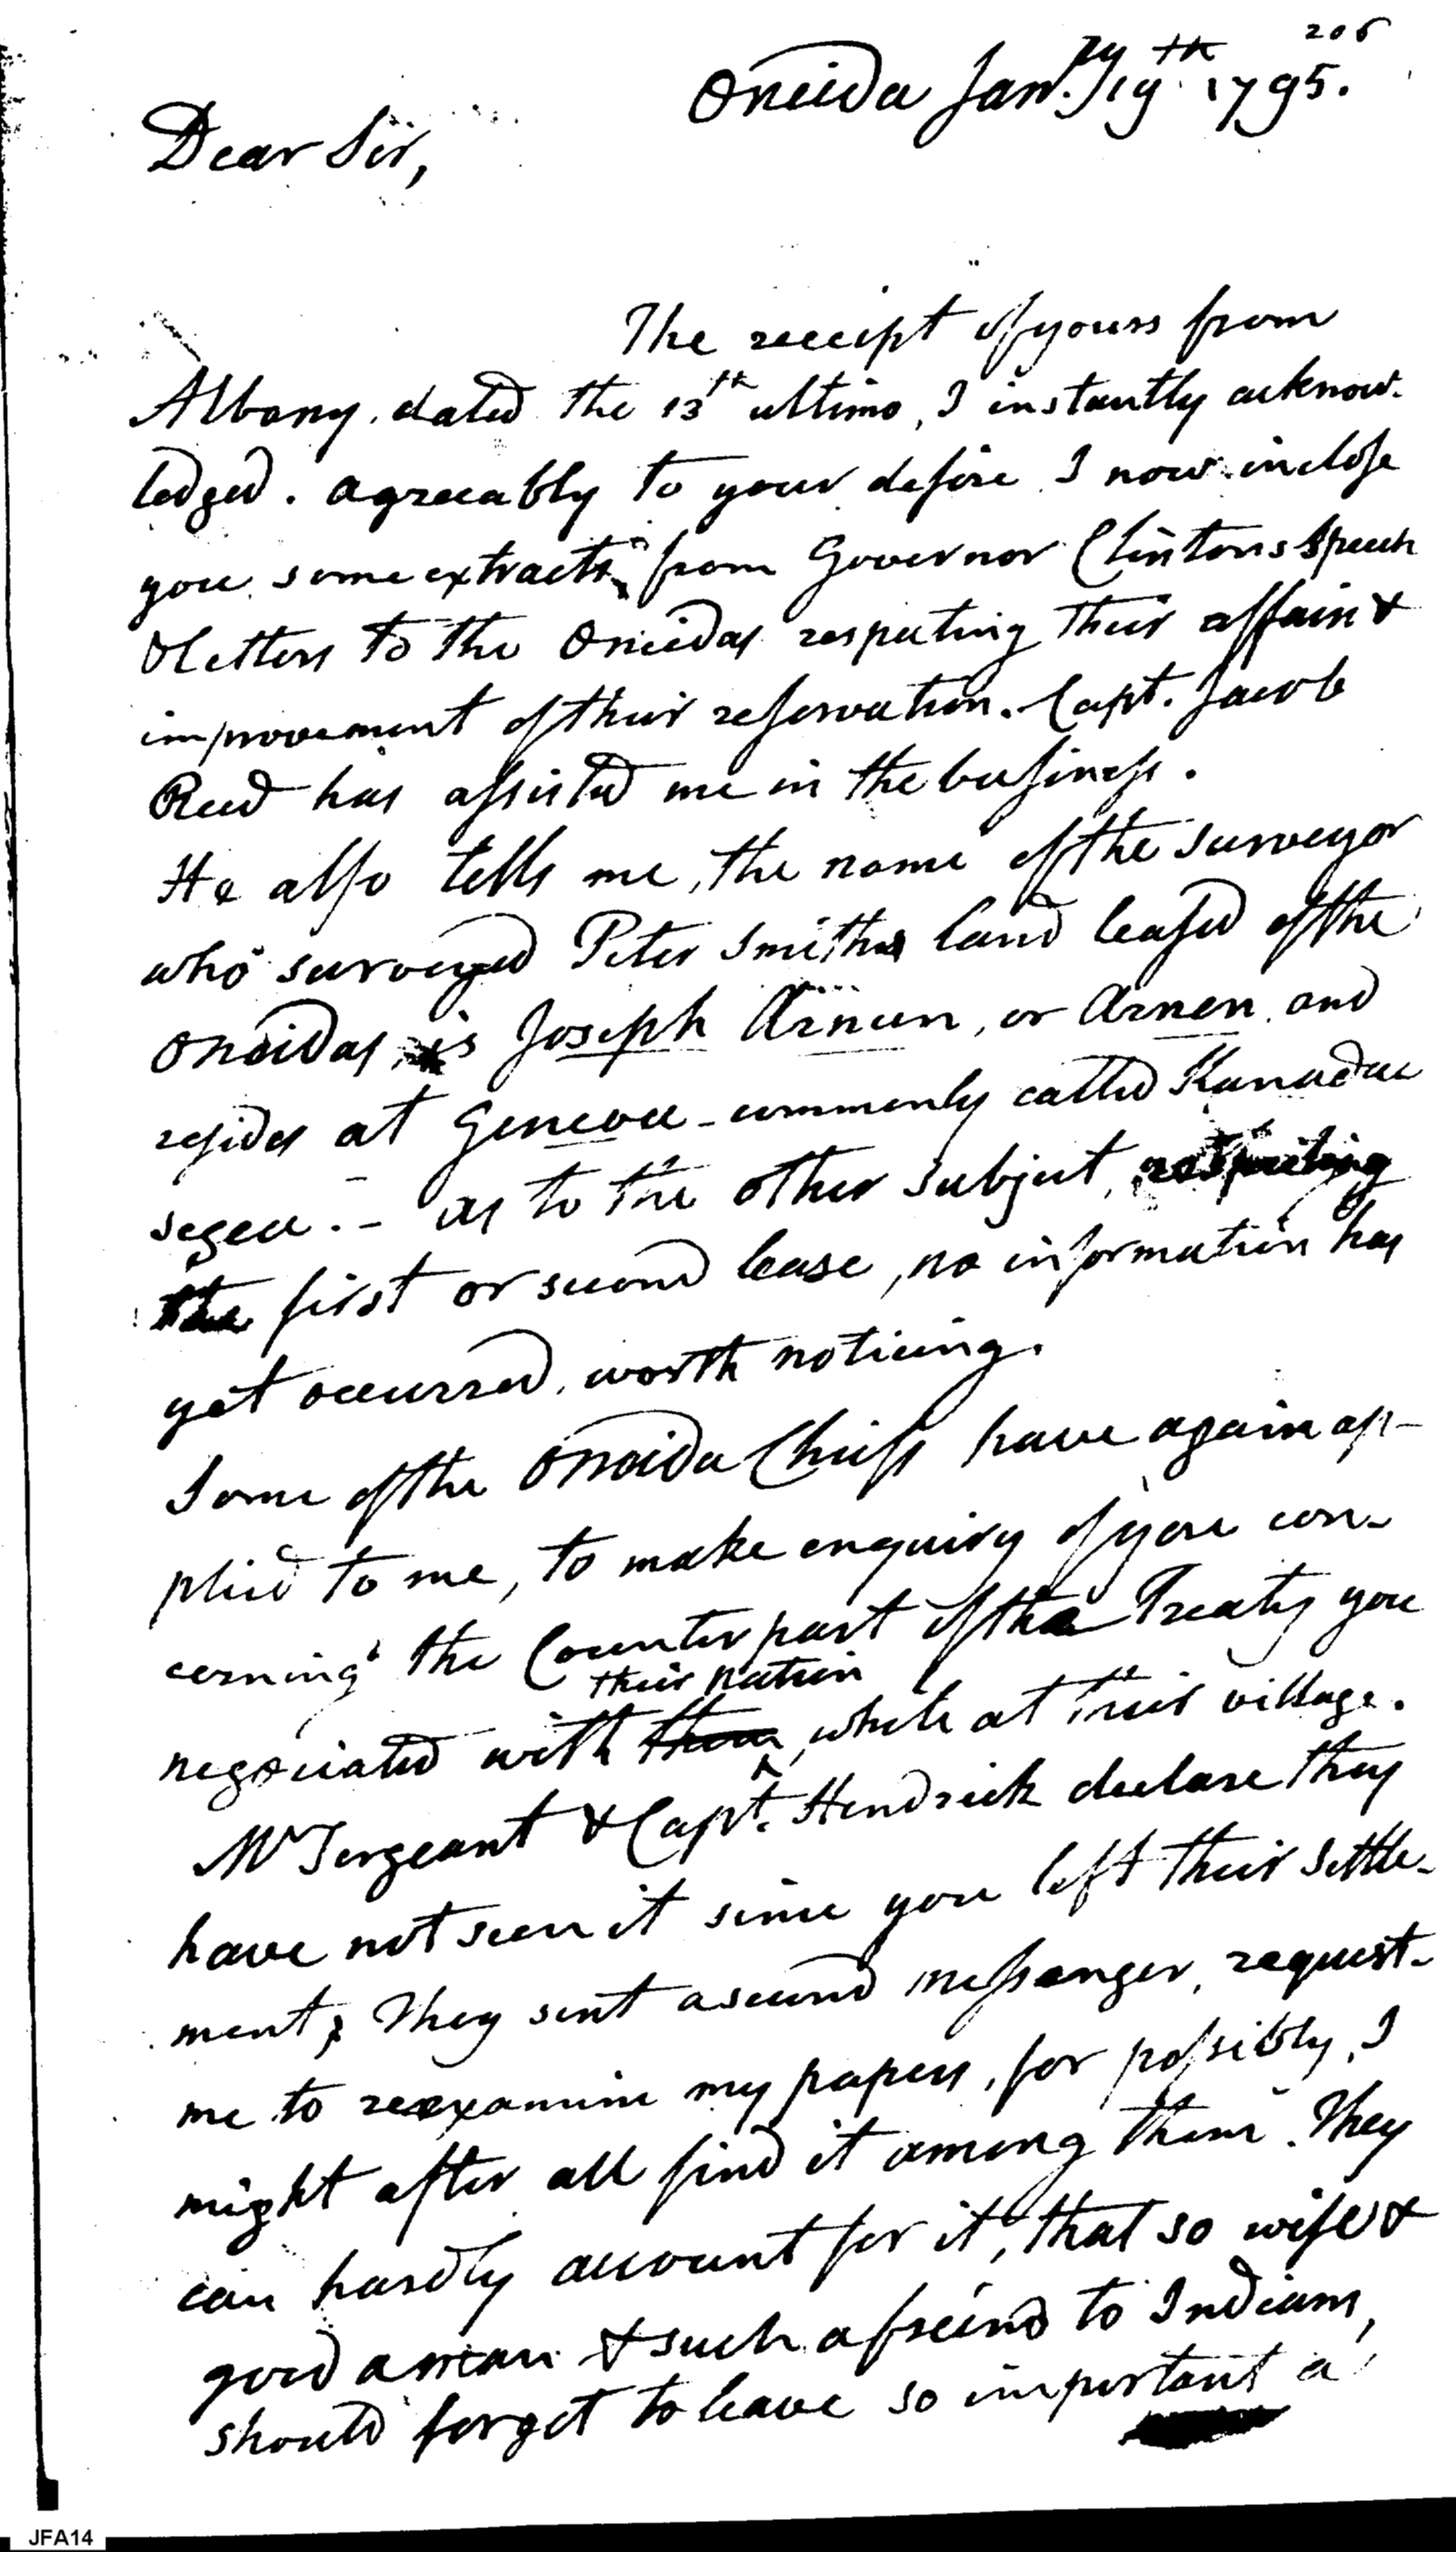 206
Oneida Jan.ry 19th 1795.
Dear Sir,
The receipt of yours from
Albany, dated the 13th ultimo, I instantly acknow-
ledged. agreeably to your desire I now inclose
you some extracts from Governor Clintons Speech
& letters to the Oneidas respecting their affairs &
improvement of their reservation. Capt. Jacob
Reed has assisted me in the business.
He also tells me, the name of the surveyor
who surveyed Peter Smiths land leased of the
Oneidas, is Joseph Annin, or Arnen, and
resides at Genevee commonly called Kanadae
segea. – as to the other subject, respecting
the first or second lease, no information has
yet occurred, worth noticing.
Some of the Oneida Chiefs have again ap-
plied to me, to make enquiry of you con-
cerning the Counter part of the Treaty you
their nation
negociated with them, while at their village.
Mr Sergeant & Capt. Hendrick declare they
have not seen it since you left their settle-
ment; They sent a second messenger, request-
me to reexamine my papers, for possibly, I
might after all find it among them. They
can hardly account for it, that so wise &
good a man & such a freind to Indians,
should forget to leave so important a
JFA14